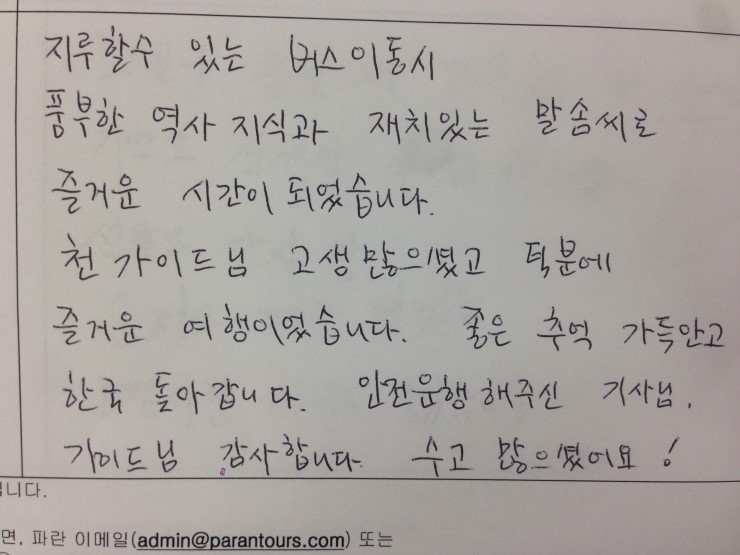 지루할수 있는 버스이동시
풍부한 역사 지식과 재치있는 말솜씨로
즐거운 시간이 되었습니다.
천 가이드님 고생 많으셨고 덕분에
즐거운 여행이었습니다. 좋은 추억 가득안고
한국 돌아갑니다. 안전운행 해주신 기사님,
가이드님 감사합니다. 수고 많으셨어요!
니다.
면, 파란 이메일(admin@parantours.com) 또는